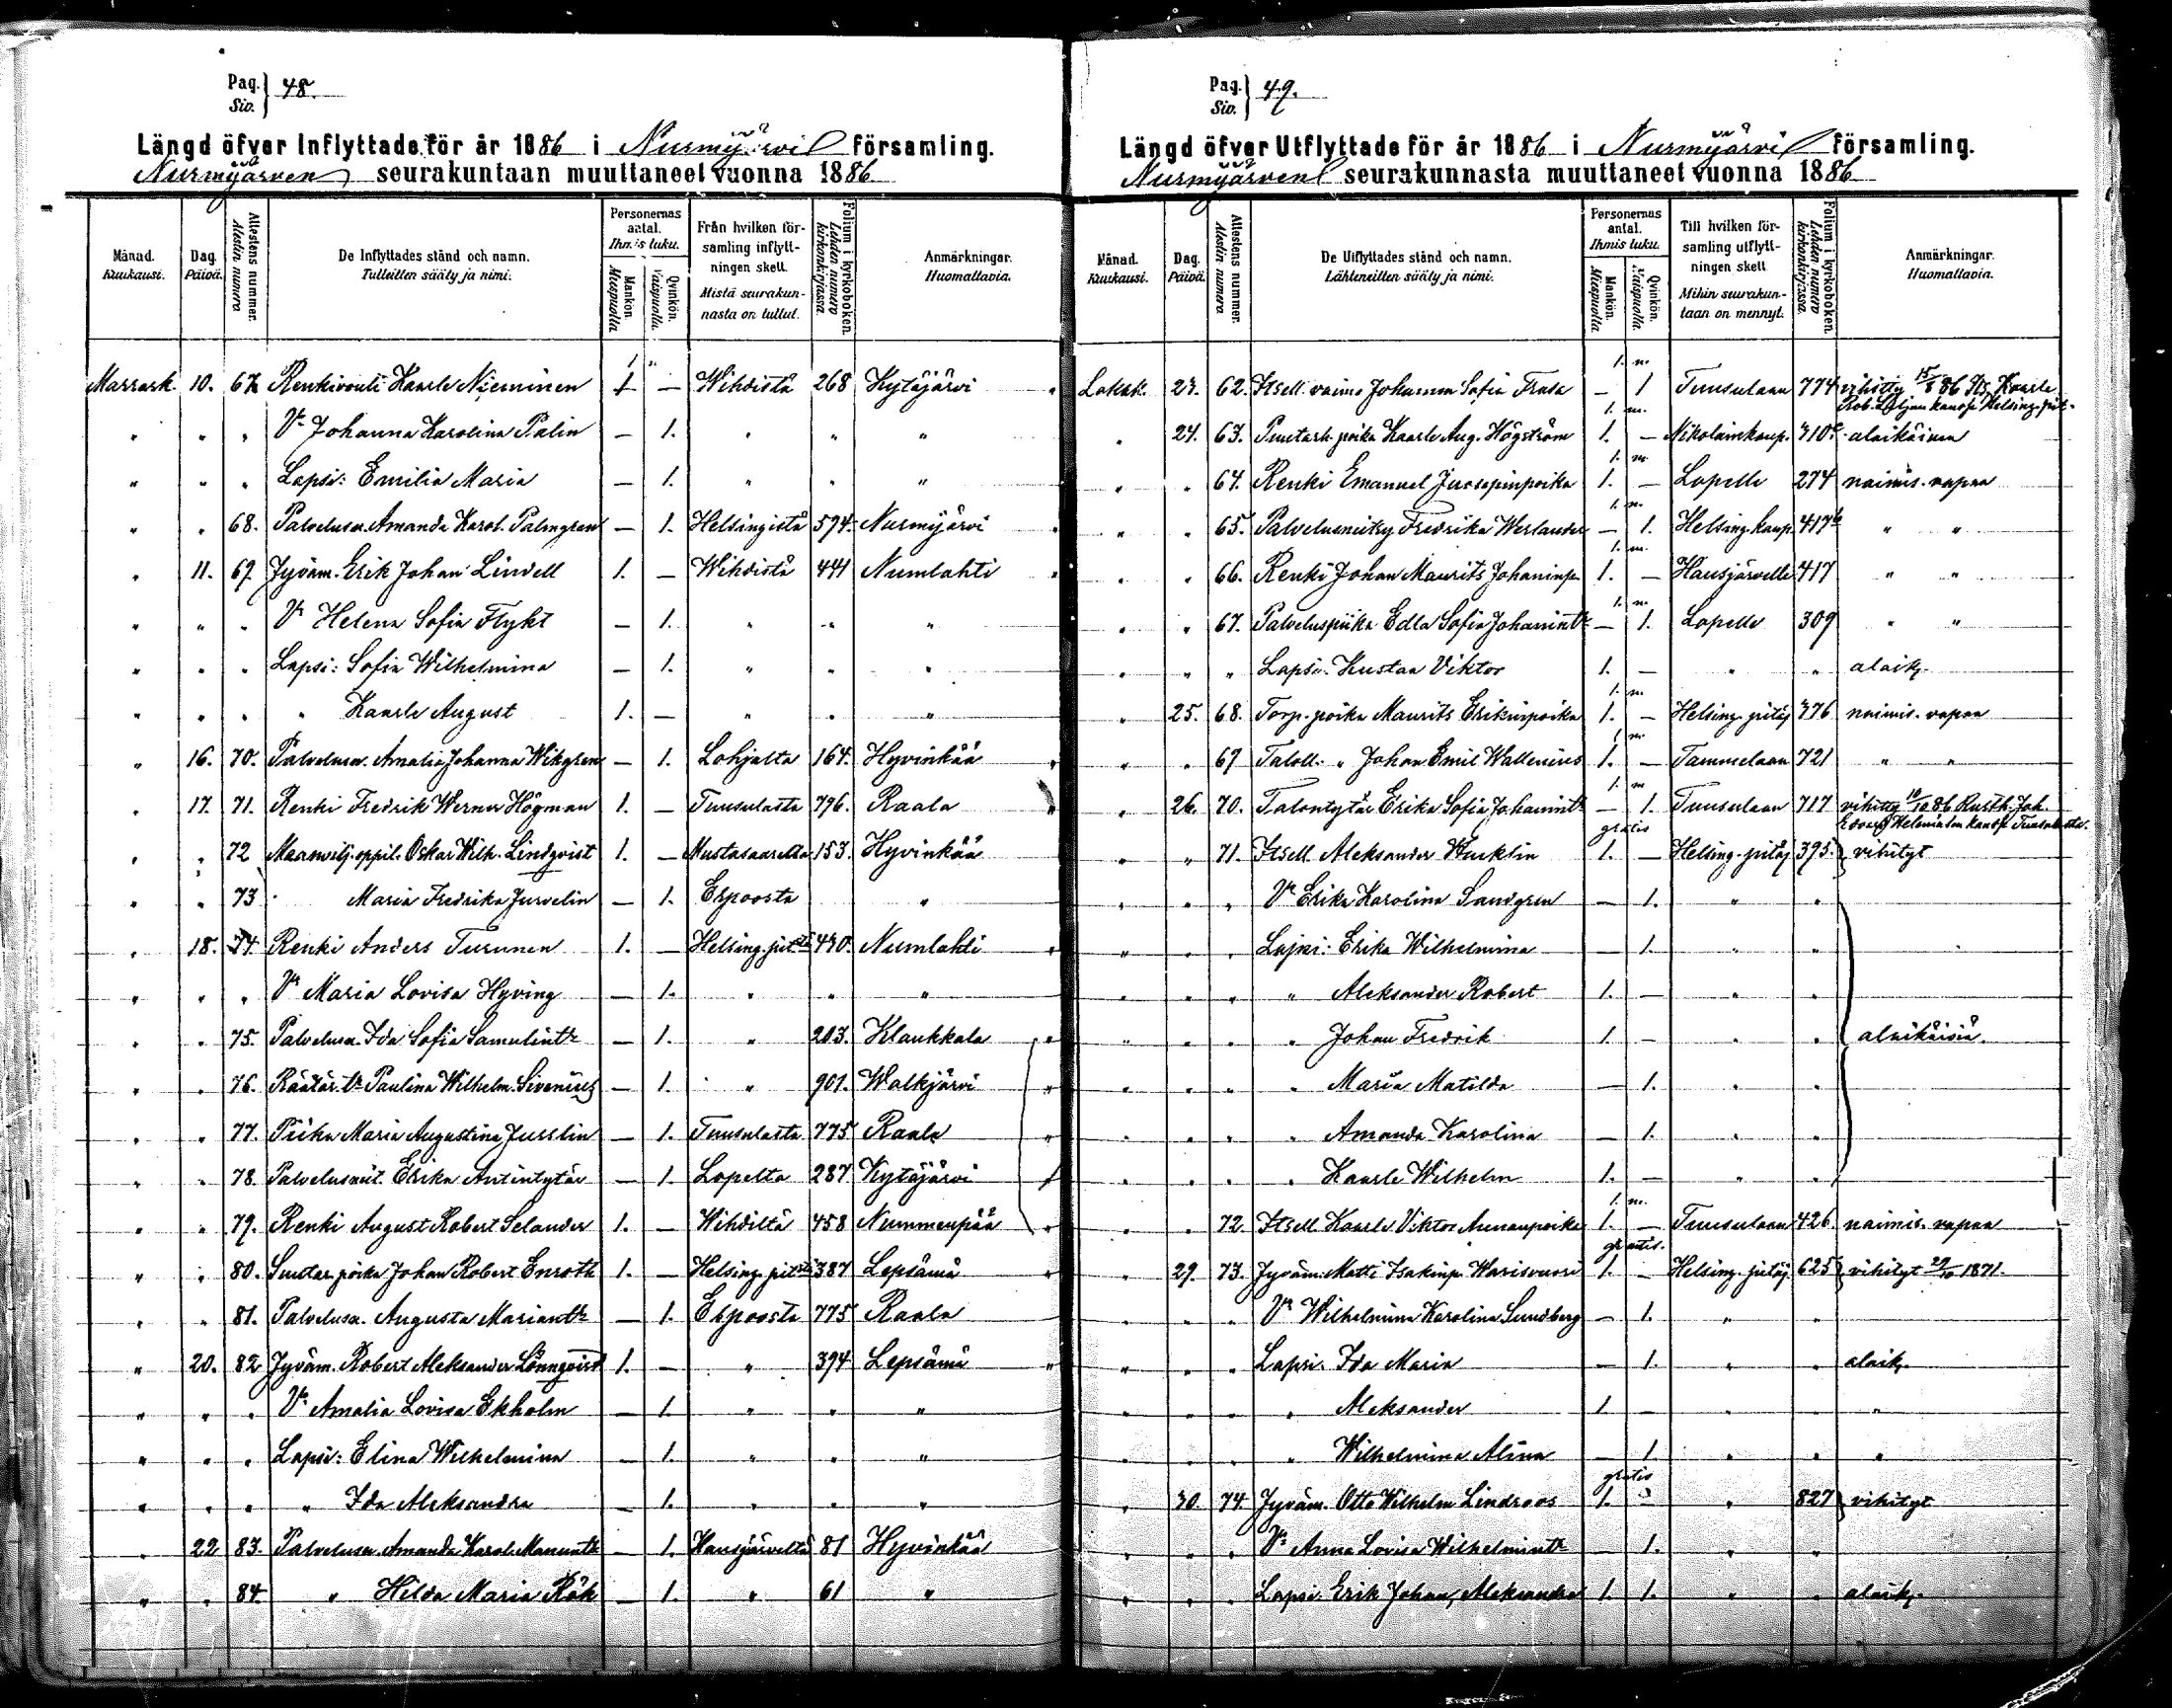 Pag. Siv. } 48.
Längd öfver Inflyttade för år 1886 i Nurmijärvi församling.
Nurmijärven seurakuntaan muuttaneet vuonna 1886
Månad. Kuukausi. | Dag. Päivä. | Attestens nummer. Atestin numero | De Inflyttades stånd och namn. Tulleitten sääty ja nimi. | Personernas antal. Ihmis luku. | Mankön. Miespuolia. | Qvinkön. Vaispuolia. | Från hvilken församling inflyttningen skett. Mistä seurakunnasta on tullut. | Folium i kyrkoboken. Lehden numero kirkonkirjassa. | Anmärkningar. Huomattavia.
Marrask. 10. 67. Renkivouti Kaarle Nieminen 1 — Wihdistä 268 Kytäjärvi
" " " V:o Johanna Karolina Palin — 1. " " "
" " " Lapsi: Emilia Maria — 1. " " "
" " 68. Palvelusn. Amanda Karol. Palmgren — 1. Helsingistä 594. Nurmijärvi
" 11. 69. Jyväm. Erik Johan Lindell 1. — Wihdistä 441 Numlahti
" " " V:o Helena Sofia Flykt — 1. " " "
" " " Lapsi: Sofia Wilhelmina — 1. " " "
" " " " Kaarle August 1. — " " "
" 16. 70. Palvelusn. Amalia Johanna Wikgren — 1. Lohjalta 164. Hyvinkää
" 17. 71. Renki Fredrik Werner Högman 1. — Tuusulasta 796. Raala
" " 72 Maanvilj. oppil. Oskar Wilh. Lindqvist 1. — Mustasaarelta 153. Hyvinkää
" " 73 Maria Fredrika Jurvelin — 1. Espoosta "
" 18. 74. Renki Anders Turunen 1. — Helsing. pit:stä 470. Numlahti
" " " V:o Maria Lovisa Hyving — 1. " " "
" " 75. Palvelusn. Ida Sofia Samulint:r — 1. " 203. Klaukkala
" " 76. Räätär. t:r Paulina Wilhelm. Sivenius — 1. " 901. Walkjärvi
" " 77. Piika Maria Augustina Jusslin — 1. Tuusulasta 775 Raala
" " 78. Palvelusnit. Erika Antintytär — 1. Lopelta 287 Kytäjärvi
" " 79. Renki August Robert Selander 1. — Wihdiltä 458 Nummenpää
" " 80. Suutar. poika Johan Robert Enroth 1. — Helsing. pit:stä 387 Lepsämä
" " 81. Palvelusn. Augusta Mariant:r — 1. Espoosta 775 Raala
" 20. 82 Jyväm. Robert Aleksander Lönnqvist 1. — " 394 Lepsämä
" " " V:o Amalia Lovisa Ekholm — 1 " " "
" " " Lapsi: Elina Wilhelmina — 1. " " "
" " " " Ida Aleksandra — 1. " " "
" 22 83. Palvelusn. Amanda Karol. Manunt:r — 1. Hausjärveltä 81 Hyvinkää
" " 84. " Hilda Maria Rök — 1. " 61 "
Pag. Siv. } 49.
Längd öfver Utflyttade för år 1886 i Nurmijärvi församling.
Nurmijärven seurakunnasta muuttaneet vuonna 1886
Månad. Kuukausi. | Dag. Päivä. | Attestens nummer. Atestin numero | De Utflyttades stånd och namn. Lähteneitten sääty ja nimi. | Personernas antal. Ihmis luku. | Mankön. Miespuolia. | Qvinkön. Vaispuolia. | Till hvilken församling utflyttningen skett Mihin seurakuntaan on mennyt. | Folium i kyrkoboken. Lehden numero kirkonkirjassa. | Anmärkningar. Huomattavia.
Lokak. 23. 62. Itsell. vaimo Johanna Sofia Frasa — 1 Tuusulaan 774 vihitty 15/8 86 Its. Kaarle
Rob. Liljan kanssa Helsing. pit.
" 24. 63. Puutark. poika Kaarle Aug. Högström 1. — Nikolainkaup. 710. alaikäinen
" " 64. Renki Emanuel Juosepinpoika 1. — Lopelle 274 naimis. vapaa
" " 65. Palvelusneitsy Fredrika Werlander — 1. Helsing. kaup. 417b " "
" " 66. Renki Johan Maurits Johaninp. 1. — Hausjärvelle 417 " "
" " 67. Palveluspiika Edla Sofia Johanint:r — 1. Lopelle 309 " "
" " " Lapsi: Kustaa Viktor 1. — " " alaik.
" 25. 68. Torp. poika Maurits Erikinpoika 1. — Helsing. pitäj 376 naimis. vapaa
" " 69 Taloll. " Johan Emil Wallenius 1. — Tammelaan 721 " "
" 26. 70. Talontytär Erika Sofia Johanint:r — 1. Tuusulaan 717 vihitty 10/10 86 Rusth. Joh.
Edvard Heleniuksen kanssa Tuusulasta.
" " 71. Itsell. Aleksander Hurklin gratis 1. — Helsing. pitäj 395. vihityt
" " " V:o Erika Karolina Sandgren — 1. " "
" " " Lapsi: Erika Wilhelmina — 1. " "
" " " " Aleksander Robert 1. — " "
" " " " Johan Fredrik 1. — " " alaikäisiä.
" " " " Maria Matilda — 1. " "
" " " " Amanda Karolina — 1. " "
" " " " Kaarle Wilhelm 1. — " "
" " 72. Itsell. Kaarle Viktor Annanpoika 1. — Tuusulaan 426. naimis. vapaa
" 29. 73. Jyväm. Matti Isakinp. Warisvuori gratis. 1. — Helsing. pitäj. 625 vihityt 29/10 1871.
" " " V:o Wilhelmina Karolina Sundberg — 1. "
" " " Lapsi: Ida Maria — 1. " " alaik.
" " " " Aleksander 1 — " " "
" " " " Wilhelmina Alina — 1. " " "
" 30. 74. Jyväm. Otto Wilhelm Lindroos gratis 1. " 827 vihityt
" " " V:o Anna Lovisa Wilhelmint:r — 1. " "
" " " Lapsi: Erik Johan, Aleksandra 1. 1. " " alaik.